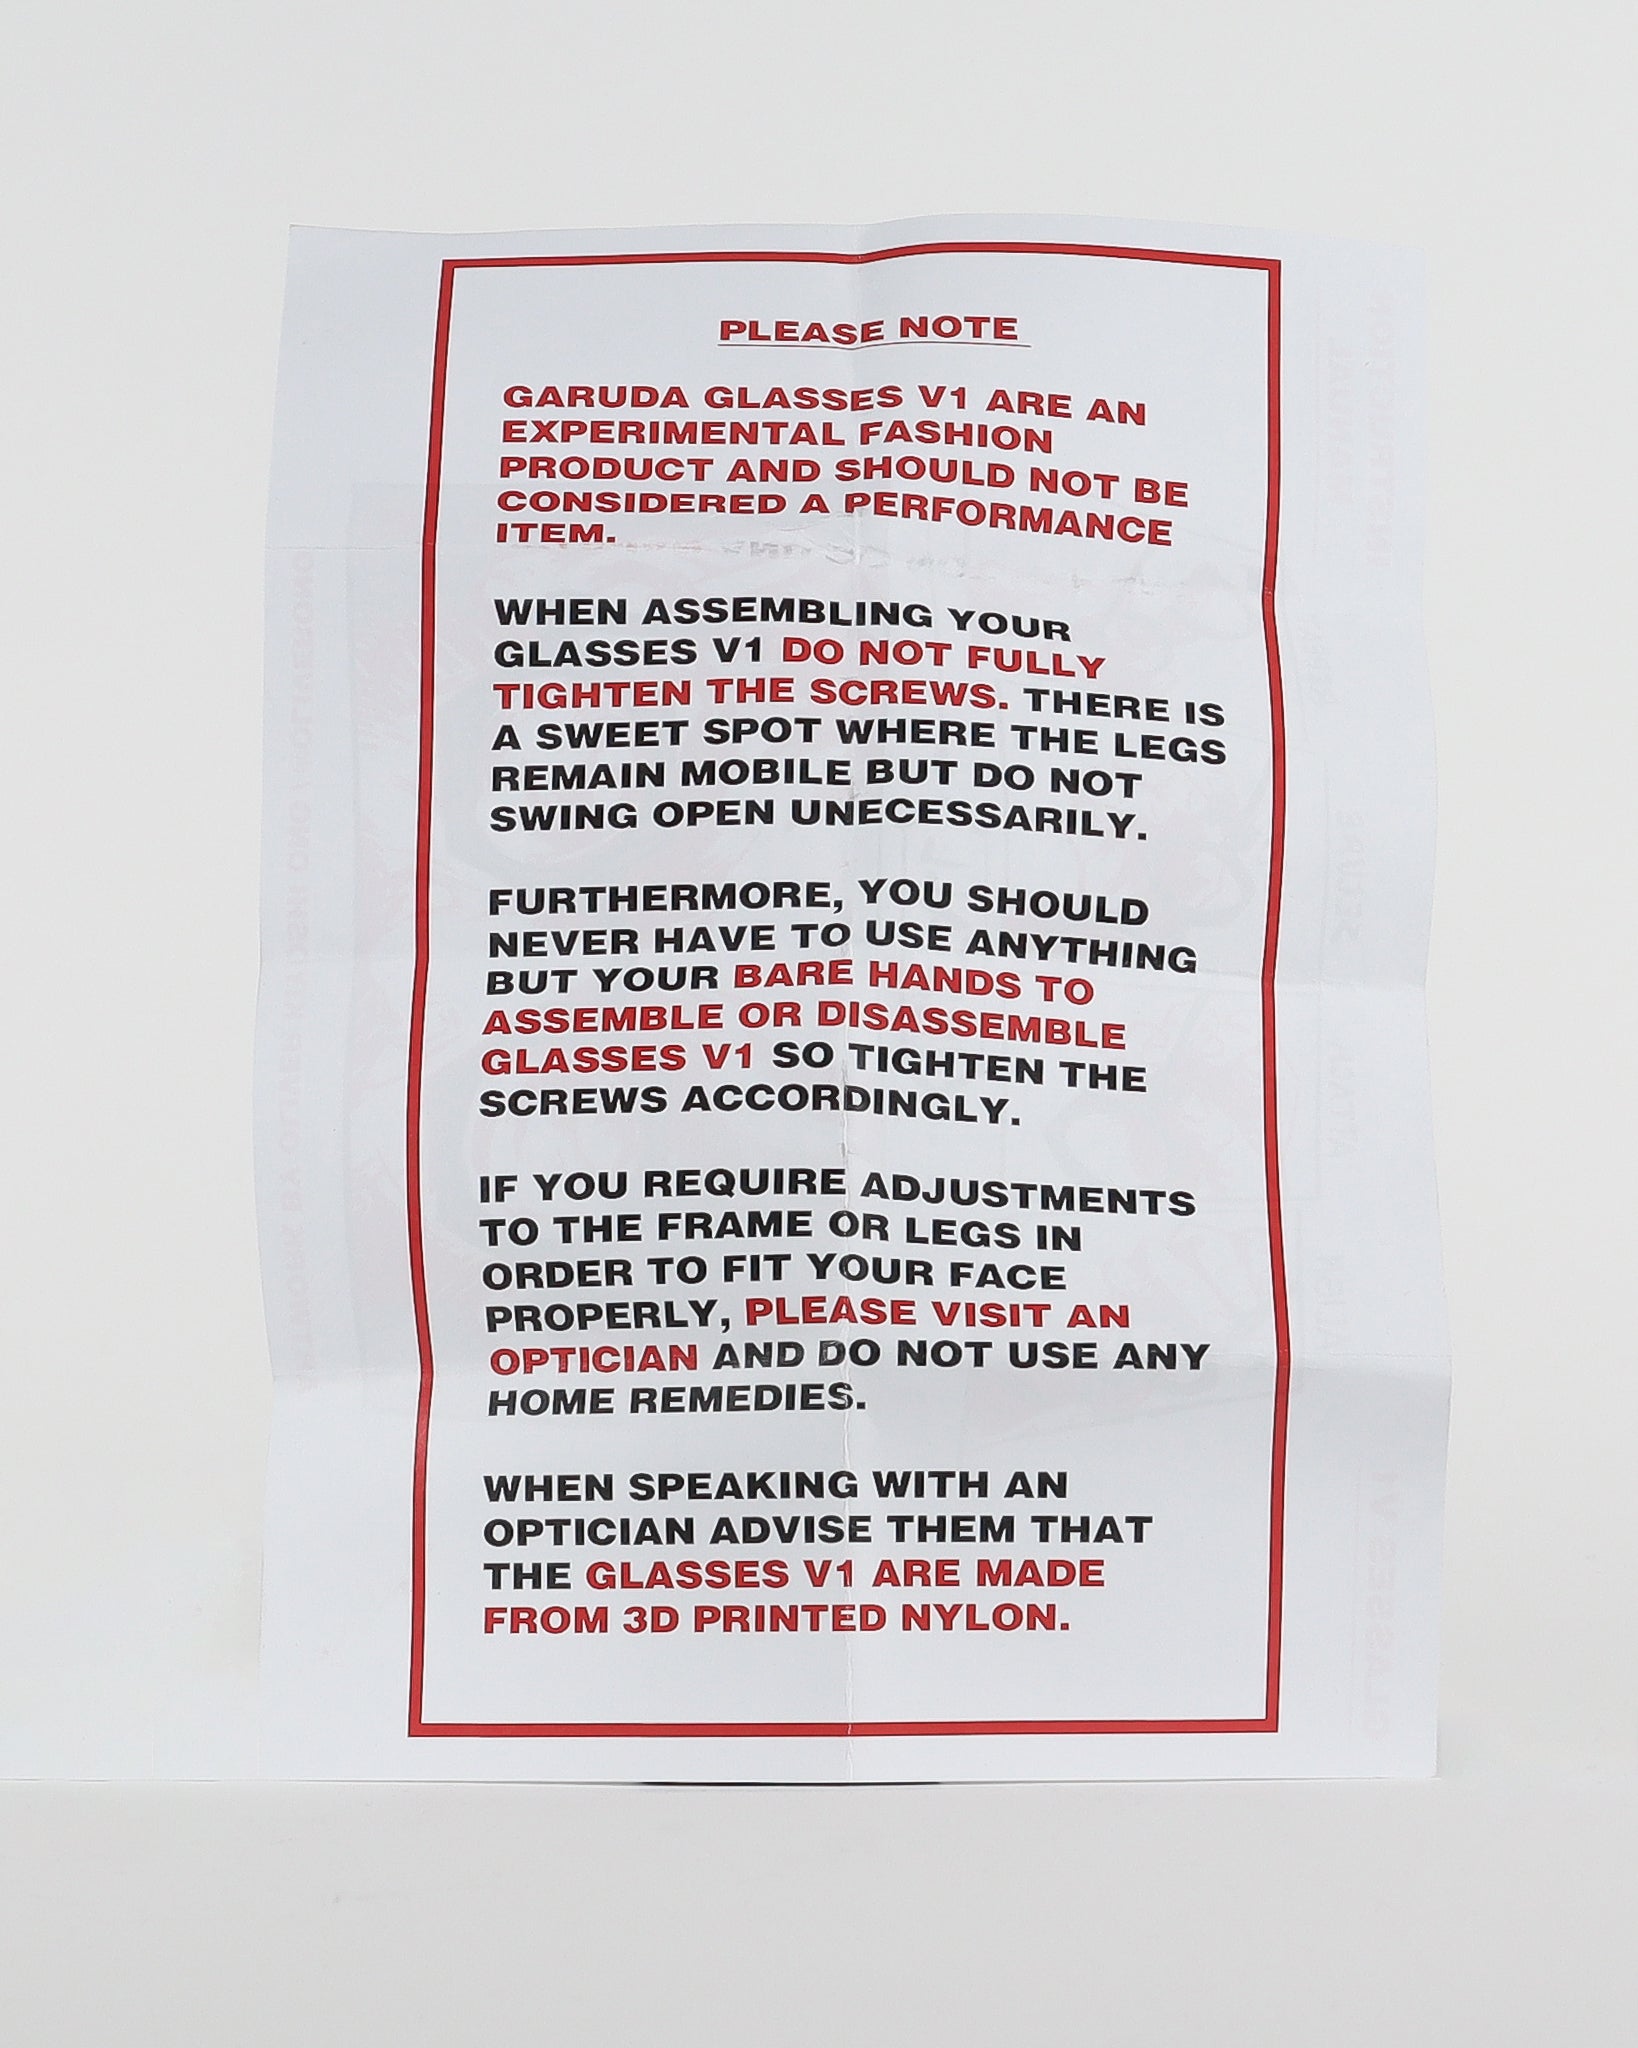 PLEASE NOTE
GARUDA GLASSES V1 ARE AN
EXPERIMENTAL FASHION
PRODUCT AND SHOULD NOT BE
CONSIDERED A PERFORMANCE
ITEM.
WHEN ASSEMBLING YOUR
GLASSES V1 DO NOT FULLY
TIGHTEN THE SCREWS. THERE IS
A SWEET SPOT WHERE THE LEGS
REMAIN MOBILE BUT DO NOT
SWING OPEN UNECESSARILY.
FURTHERMORE, YOU SHOULD
NEVER HAVE TO USE ANYTHING
BUT YOUR BARE HANDS TO
ASSEMBLE OR DISASSEMBLE
GLASSES V1 SO TIGHTEN THE
SCREWS ACCORDINGLY.
IF YOU REQUIRE ADJUSTMENTS
TO THE FRAME OR LEGS IN
ORDER TO FIT YOUR FACE
PROPERLY, PLEASE VISIT AN
OPTICIAN AND DO NOT USE ANY
HOME REMEDIES.
WHEN SPEAKING WITH AN
OPTICIAN ADVISE THEM THAT
THE GLASSES V1 ARE MADE
FROM 3D PRINTED NYLON.